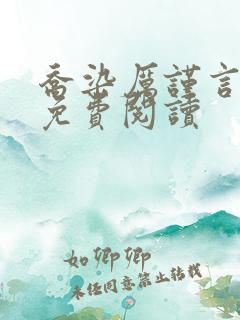 喬染厲謹言
免費閱讀
如卿卿
未经同意禁止转载